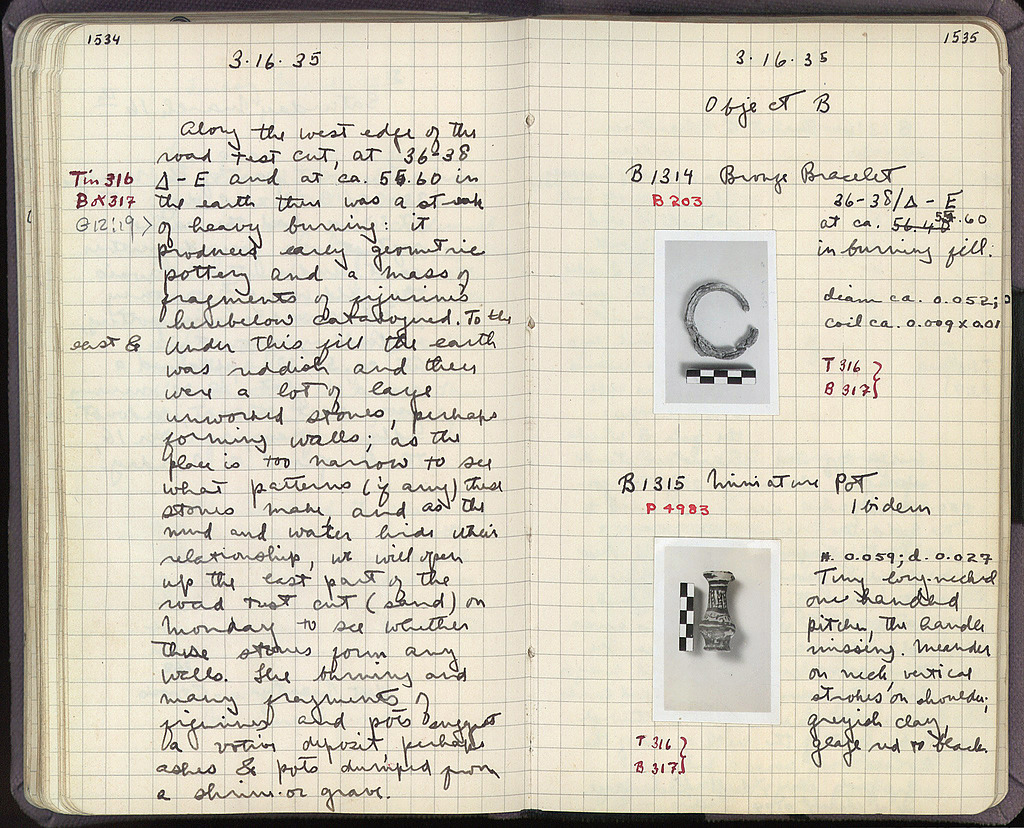 1534
3·16·35
Along the west edge of the
road test cut, at 36-38
Tin 316
Δ - E and at ca. 55.60 in
B & 317
the earth there was a streak
Θ12:19 > of heavy burning: it
produced early geometric
pottery and a mass of
fragments of figurines
herebelow catalogued. To the
east & under this fill the earth
was reddish and there
were a lot of large
unworked stones, perhaps
forming walls; as the
place is too narrow to see
what patterns (if any) these
stones make, and as the
mud and water hide their
relationship, we will open
up the east part of the
road test cut (sand) on
Monday to see whether
these stones form any
walls. The burning and
many fragments of
figurines and pots suggest
a votive deposit, perhaps
ashes & pots dumped from
a shrine or grave.
1535
3·16·35
Object B
B 1314 Bronze Bracelet
B 203
36-38/Δ - E
at ca. 56.40 55.60
in burning fill.
diam ca. 0.052;
coil ca. 0.009 x 0.01
T 316
B 317
B 1315 Miniature Pot
P 4983
Ibidem
H. 0.059; d. 0.027
Tiny long-necked
one handled
pitcher, the handle
missing. Meander
on neck, vertical
strokes on shoulder;
greyish clay,
glaze red to black
T 316
B 317